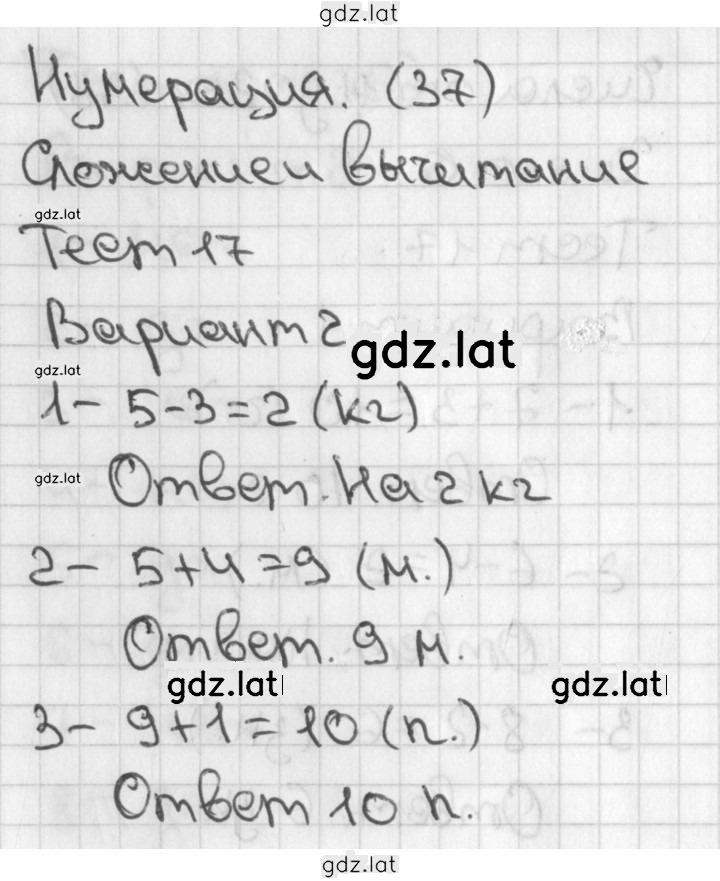 gdz.lat
Нумерация. (37)
Сложение и вычитание
gdz.lat
Тест 17
Вариант 2
gdz.lat
gdz.lat
1- 5-3=2 (кг)
gdz.lat
Ответ. На 2 кг
2- 5+4=9 (м.)
Ответ. 9 м.
gdz.lat
gdz.lat
3- 9+1=10 (п.)
Ответ 10 п.
gdz.lat